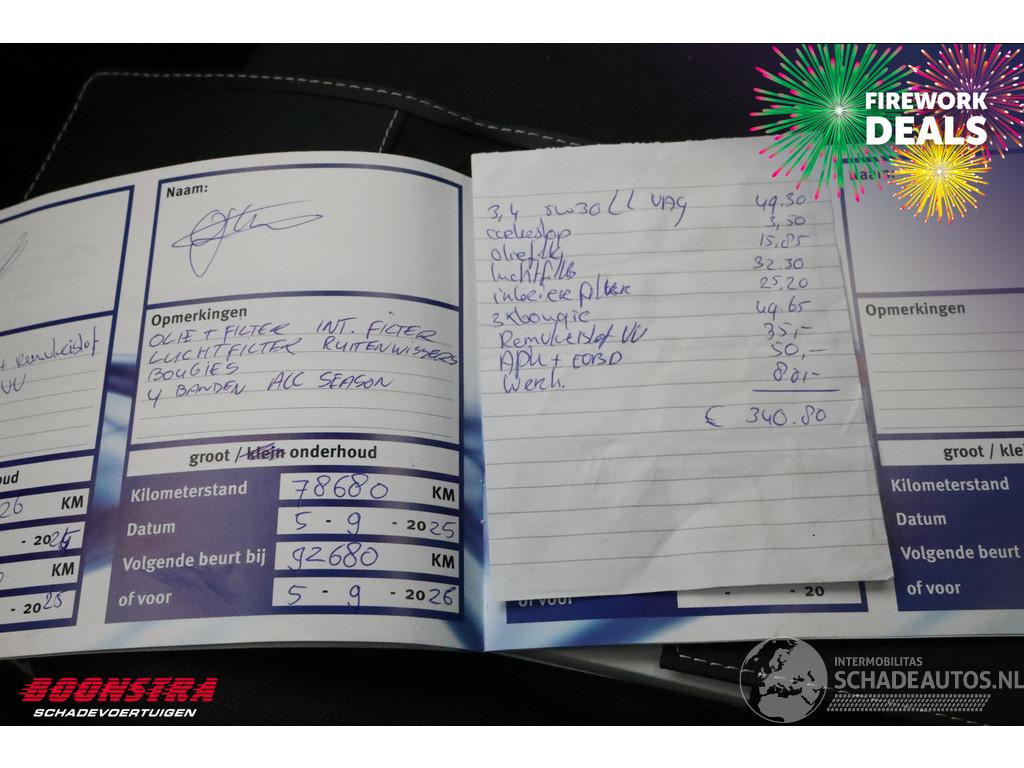 FIREWORK
DEALS
Naam:
Opmerkingen
OLIE + FILTER INT. FILTER
LUCHTFILTER RUITENWISSERS
BOUGIES
4 BANDEN ALL SEASON
groot / klein onderhoud
Kilometerstand 78680 KM
Datum 5 - 9 - 2025
Volgende beurt bij 92680 KM
of voor 5 - 9 - 2026
+ Remvloeistof
VV
oud
26 KM
- 202
KM
- 2025
3,4 5w30 LL VAG 49.30
3,50
oliefilt 15,85
luchtfilt 32.30
interieurfilter 25,20
3x bougie 49.65
Remvloeistof VV 35,-
APK + EOBD 50,-
Werk. 80,-
€ 340.80
of voor - - 20
Naam:
Opmerkingen
groot / klei
Kilometerstand
Datum
Volgende beurt
of voor
BOONSTRA
SCHADEVOERTUIGEN
INTERMOBILITAS
SCHADEAUTOS.NL